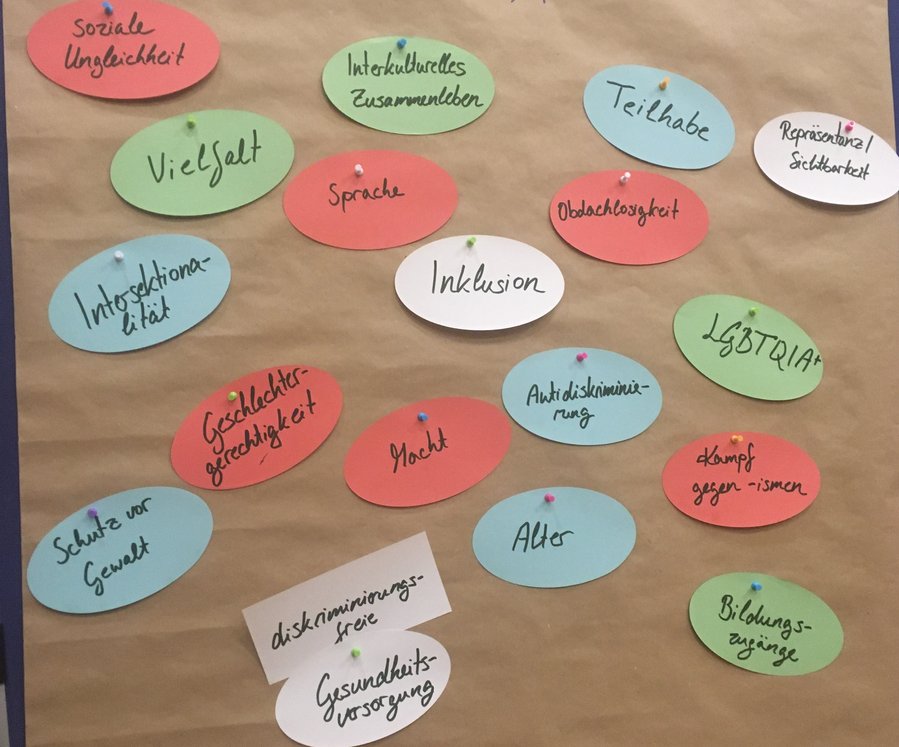 Soziale
Ungleichheit
Interkulturelles
Zusammenleben
Teilhabe
Repräsentanz/
Sichtbarkeit
Vielfalt
Sprache
Obdachlosigkeit
Intersektiona-
lität
Inklusion
LGBTQIA+
Geschlechter-
gerechtigkeit
Macht
Antidiskriminie-
rung
Kampf
gegen -ismen
Schutz vor
Gewalt
Alter
diskriminierungs-
freie
Gesundheits-
versorgung
Bildungs-
zugänge